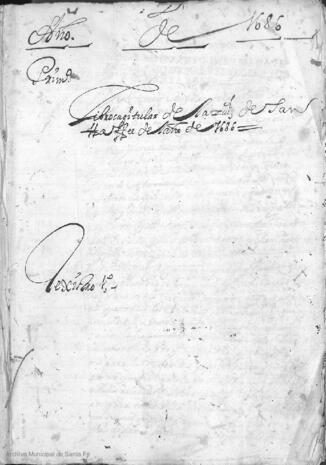 Año. de 1686
Prim.o
Libro capitular de la ziud de San
ta ffee de el año de 1686
Archivo Municipal de Santa Fe